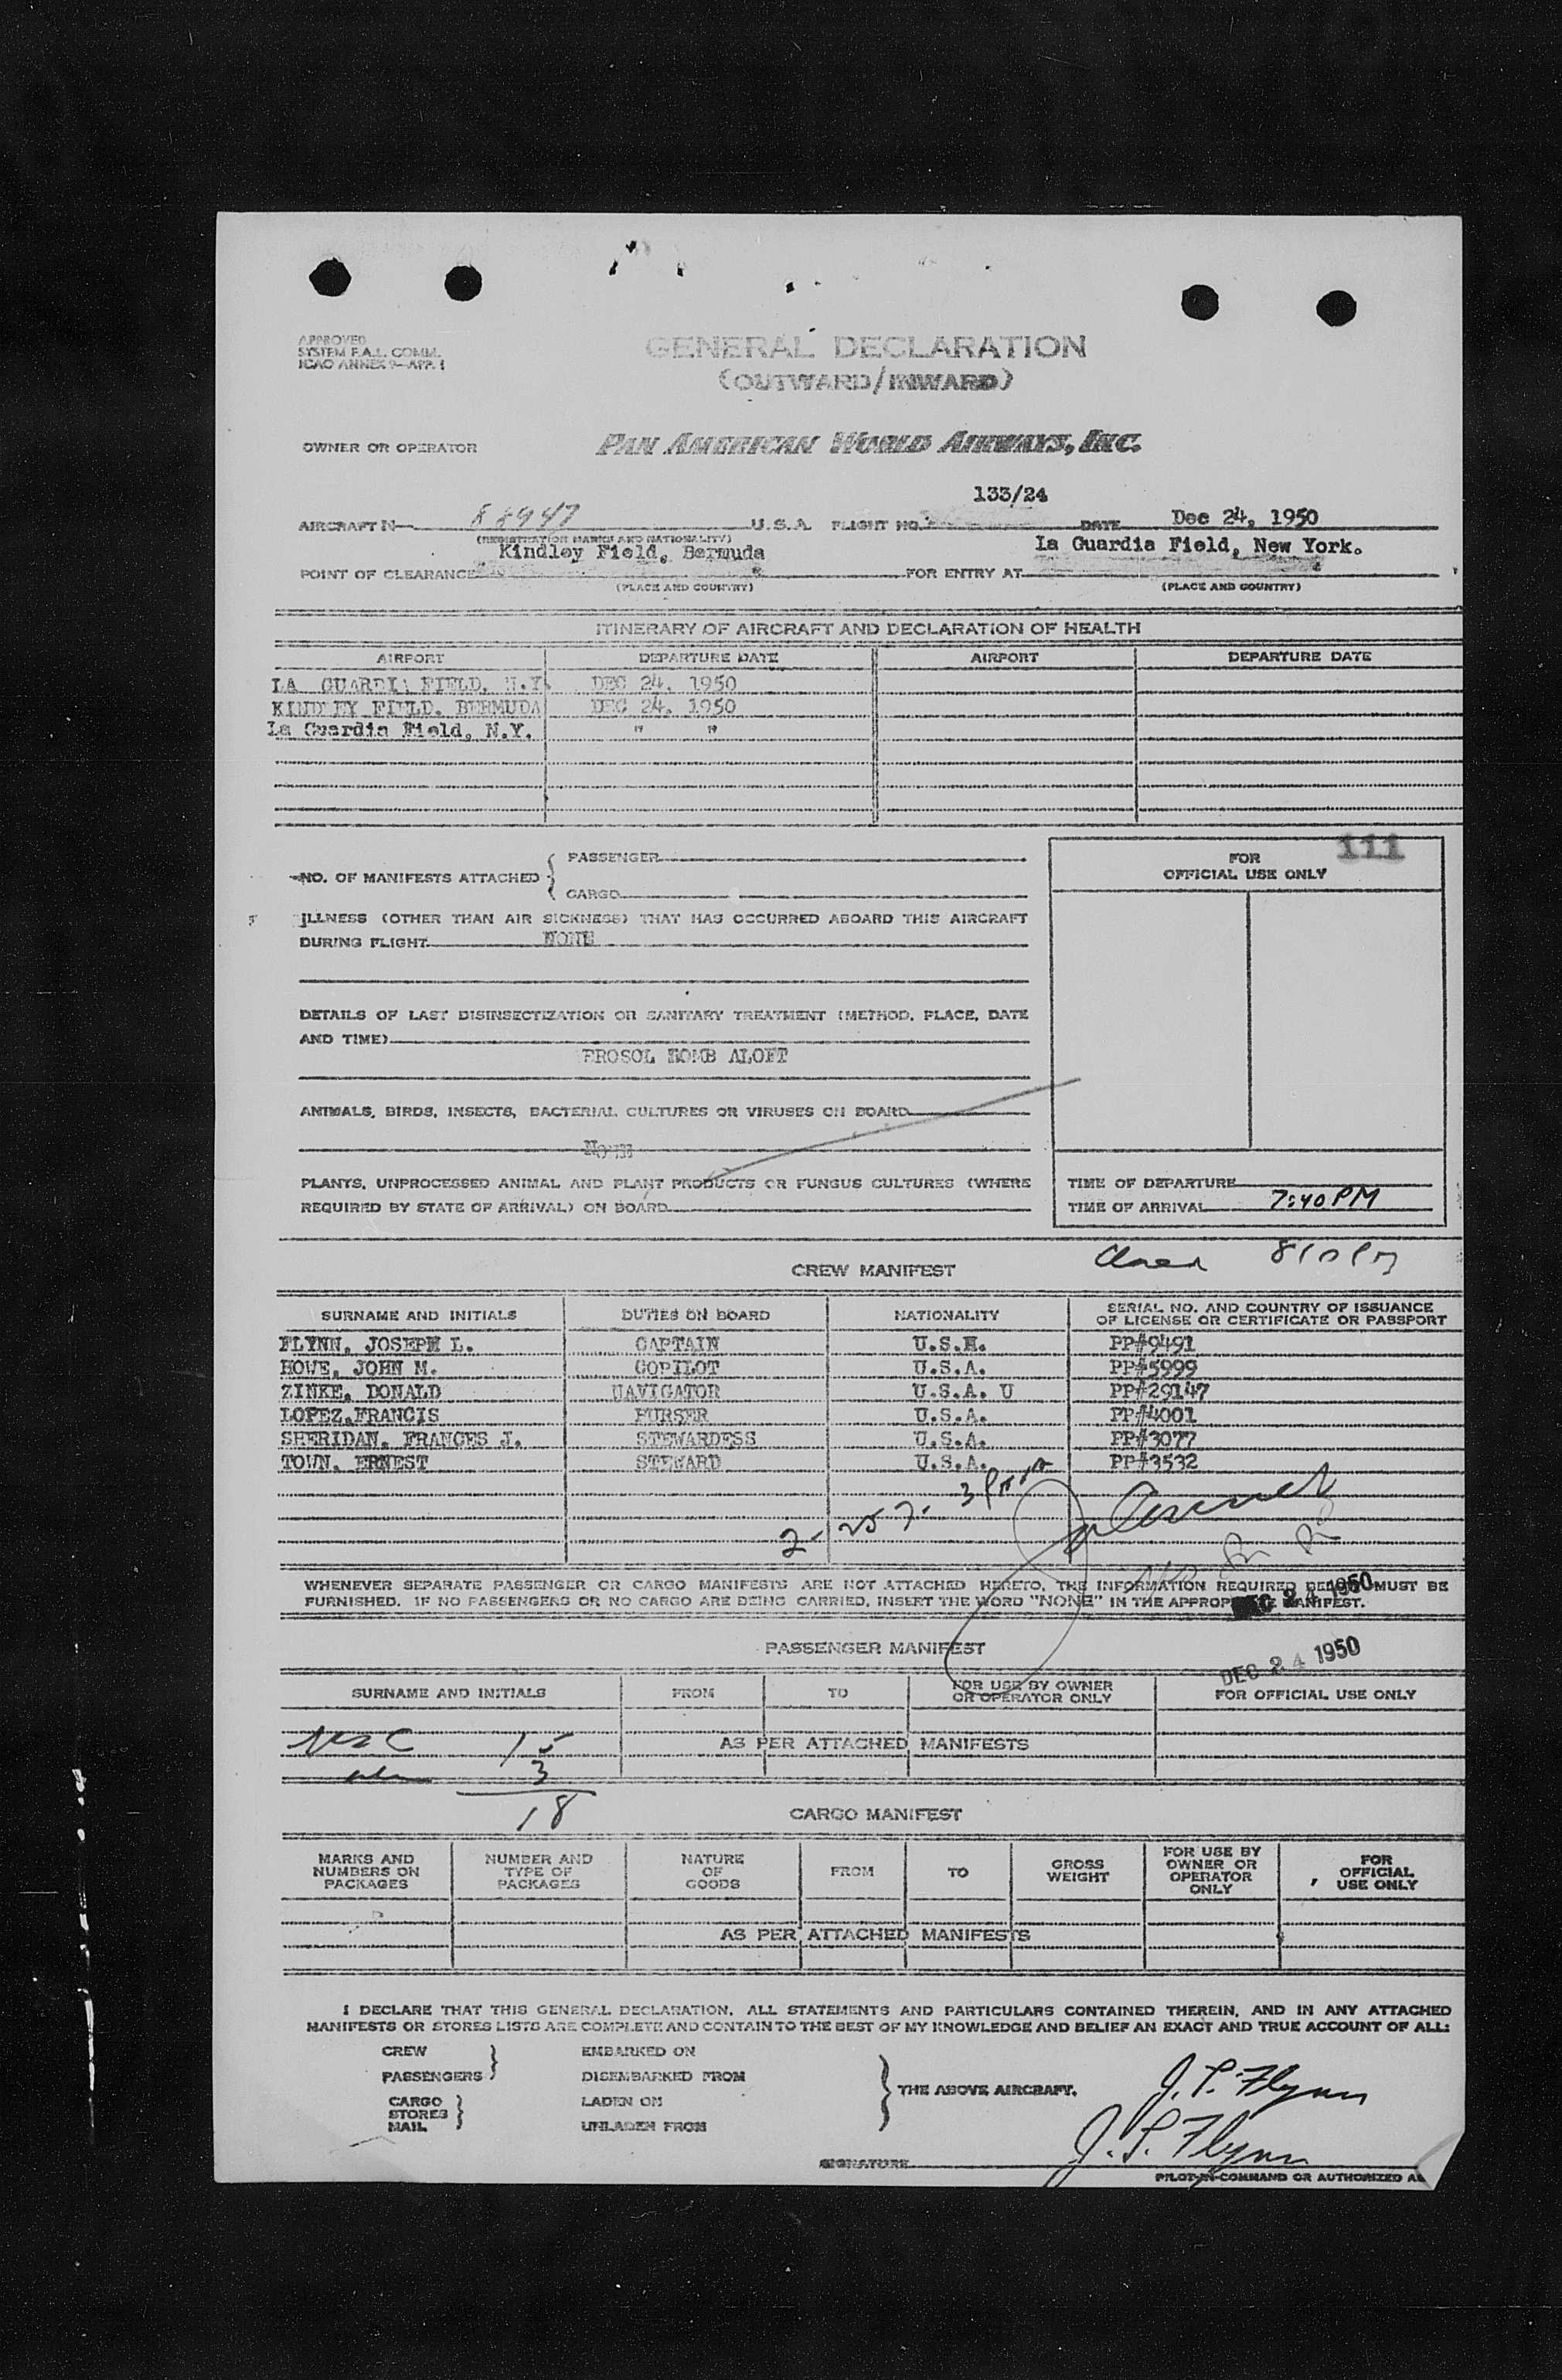 APPROVED
SYSTEM F.A.L. COMM.
ICAO ANNEX 9—APP. 1
GENERAL DECLARATION
(OUTWARD/INWARD)
OWNER OR OPERATOR PAN AMERICAN WORLD AIRWAYS, INC.
133/24
AIRCRAFT N— 88947 U.S.A. FLIGHT NO. DATE Dec 24, 1950
(REGISTRATION MARKS AND NATIONALITY)
Kindley Field, Bermuda La Guardia Field, New York.
POINT OF CLEARANCE FOR ENTRY AT
(PLACE AND COUNTRY) (PLACE AND COUNTRY)
ITINERARY OF AIRCRAFT AND DECLARATION OF HEALTH
AIRPORT DEPARTURE DATE AIRPORT DEPARTURE DATE
LA GUARDIA FIELD, N.Y. DEC 24, 1950
KINDLEY FIELD, BERMUDA DEC 24, 1950
La Guardia Field, N.Y. " "
111
PASSENGER
NO. OF MANIFESTS ATTACHED
CARGO
FOR
OFFICIAL USE ONLY
ILLNESS (OTHER THAN AIR SICKNESS) THAT HAS OCCURRED ABOARD THIS AIRCRAFT
DURING FLIGHT NONE
DETAILS OF LAST DISINSECTIZATION OR SANITARY TREATMENT (METHOD, PLACE, DATE
AND TIME)
EROSOL BOMB ALOFT
ANIMALS, BIRDS, INSECTS, BACTERIAL CULTURES OR VIRUSES ON BOARD
NONE
PLANTS, UNPROCESSED ANIMAL AND PLANT PRODUCTS OR FUNGUS CULTURES (WHERE
REQUIRED BY STATE OF ARRIVAL) ON BOARD
TIME OF DEPARTURE
TIME OF ARRIVAL 7:40 PM
810 PM
CREW MANIFEST
SURNAME AND INITIALS DUTIES ON BOARD NATIONALITY SERIAL NO. AND COUNTRY OF ISSUANCE
OF LICENSE OR CERTIFICATE OR PASSPORT
FLYNN, JOSEPH L. CAPTAIN U.S.A. PP#9491
HOWE, JOHN M. COPILOT U.S.A. PP#5999
ZINKE, DONALD NAVIGATOR U.S.A. U PP#29147
LOPEZ,FRANCIS PURSER U.S.A. PP#4001
SHERIDAN, FRANCES J. STEWARDESS U.S.A. PP#3077
TOWN, ERNEST STEWARD U.S.A. PP#3532
WHENEVER SEPARATE PASSENGER OR CARGO MANIFESTS ARE NOT ATTACHED HERETO, THE INFORMATION REQUIRED BELOW MUST BE
FURNISHED. IF NO PASSENGERS OR NO CARGO ARE BEING CARRIED, INSERT THE WORD "NONE" IN THE APPROPRIATE MANIFEST.
DEC 24 1950
DEC 24 1950
PASSENGER MANIFEST
SURNAME AND INITIALS FROM TO FOR USE BY OWNER
OR OPERATOR ONLY FOR OFFICIAL USE ONLY
15
AS PER ATTACHED MANIFESTS
3
18
CARGO MANIFEST
MARKS AND
NUMBERS ON
PACKAGES
NUMBER AND
TYPE OF
PACKAGES
NATURE
OF
GOODS
FROM
TO
GROSS
WEIGHT
FOR USE BY
OWNER OR
OPERATOR
ONLY
FOR
OFFICIAL
USE ONLY
AS PER ATTACHED MANIFESTS
I DECLARE THAT THIS GENERAL DECLARATION, ALL STATEMENTS AND PARTICULARS CONTAINED THEREIN, AND IN ANY ATTACHED
MANIFESTS OR STORES LISTS ARE COMPLETE AND CONTAIN TO THE BEST OF MY KNOWLEDGE AND BELIEF AN EXACT AND TRUE ACCOUNT OF ALL:
CREW EMBARKED ON
PASSENGERS DISEMBARKED FROM
THE ABOVE AIRCRAFT.
CARGO LADEN ON
STORES
MAIL UNLADEN FROM
J. L. Flynn
J. L. Flynn
SIGNATURE
PILOT-IN-COMMAND OR AUTHORIZED